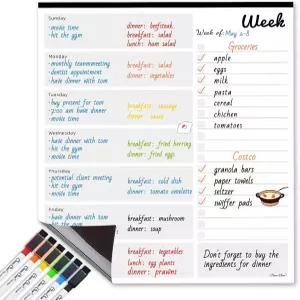 Week
Week of: May 2-8
Sunday
- movie time
- hit the gym
dinner: beefsteak
breakfast: salad
lunch: ham salad
Monday
- monthly teammeeting
- dentist appointment
- have dinner with tom
breakfast: salad
dinner: vegetables
Tuesday
- buy present for tom
- 7:00 am have dinner
- movie time
breakfast: sausage
dinner: sauce
Wednesday
- have dinner with tom
- hit the gym
breakfast: fried herring
dinner: fried eggs
Thursday
- potential client meeting
- hit the gym
breakfast: cold dish
dinner: tomato omelette
Friday
- have dinner with tom
- movie time
breakfast: mushroom
dinner: soup
breakfast: vegetables
lunch: eggplants
dinner: prawns
Groceries
apple
eggs
milk
pasta
cereal
chicken
tomatoes
Costco
granola bars
paper towels
seltzer
swiffer pads
Don't forget to buy the
ingredients for dinner